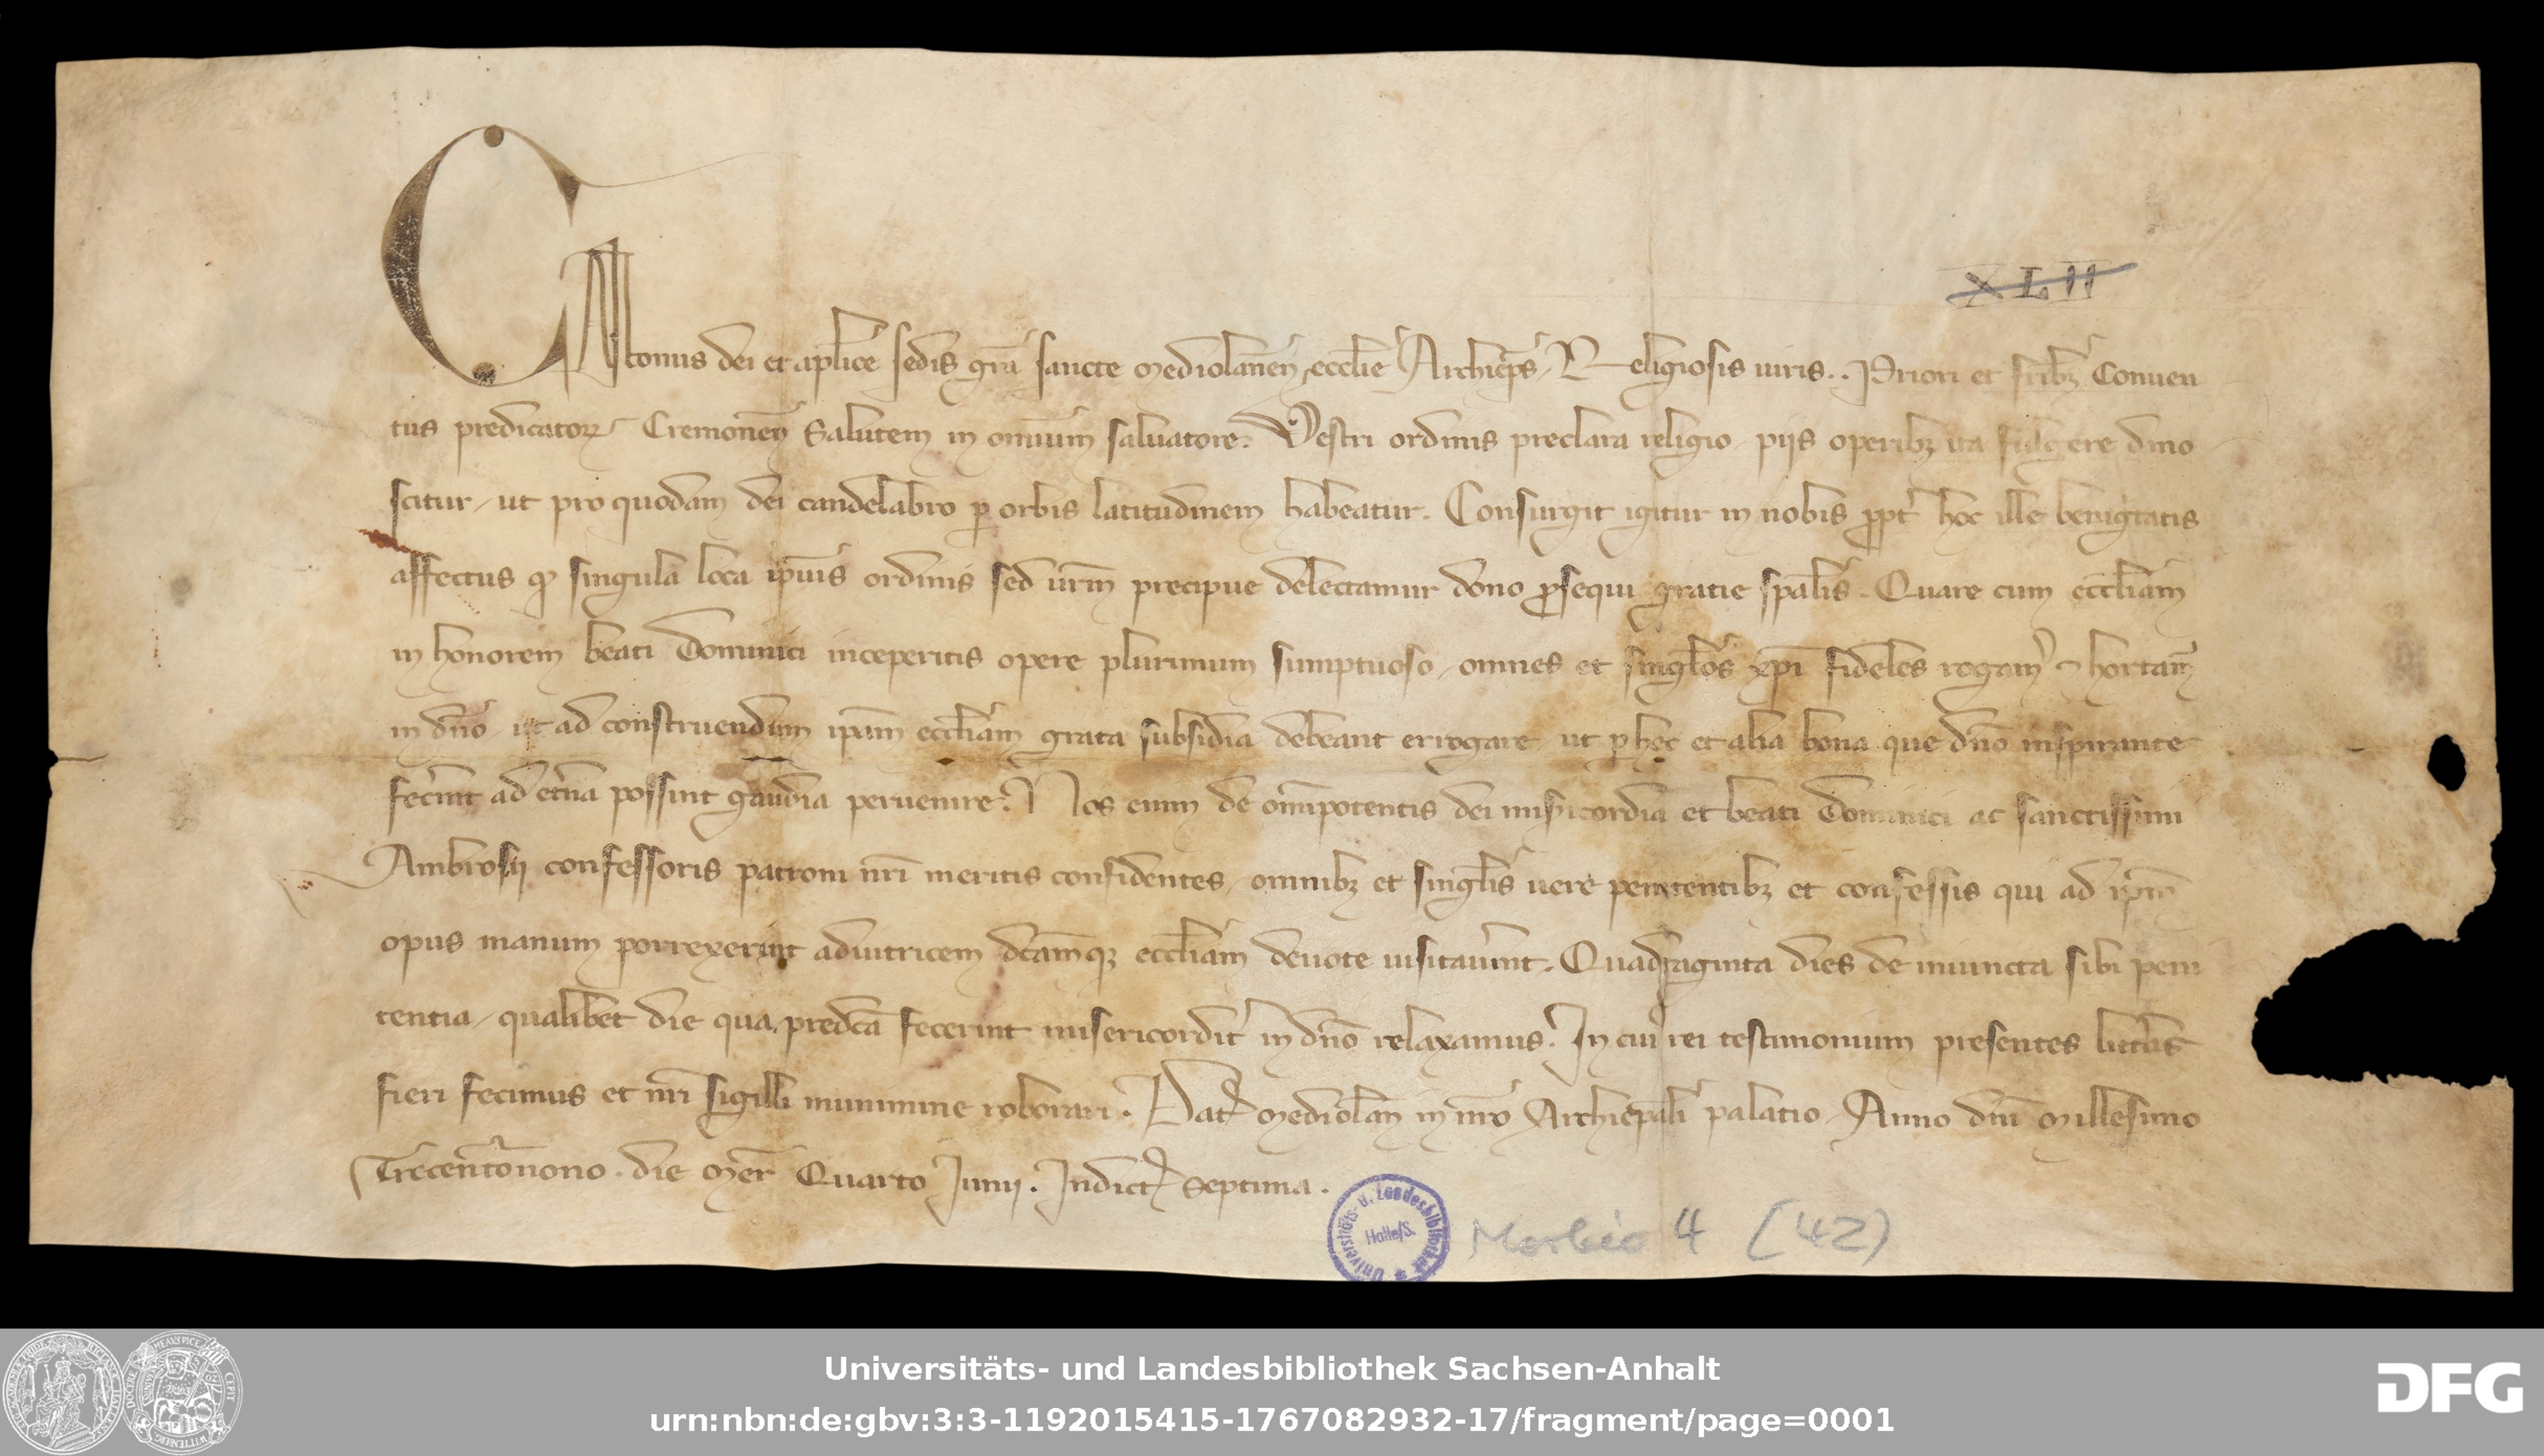 XLII
CAstonus dei et aplice sedis gra sancte Mediolanen ecclie Archieps. Religiosis uiris .. Priori et fribz Conuen
tus predicatoꝝ Cremonen Salutem in omnium saluatore. Vestri ordinis preclara religio piis operibz ita fulgere dino
scitur, ut pro quodam dei candelabro ꝑ orbis latitudinem habeatur. Consurgit igitur in nobis ꝓpt hoc ille benigtatis
affectus singula loca ipius ordinis sed urm precipue delectamur dono ꝓsequi gratie spalis. Quare cum eccliam
in honorem beati Dominici inceperitis opere plurimum sumptuoso, omnes et singlos xpi fideles rogam hortam
in dno ut ad construendum ipam eccliam grata subsidia debeant errogare ut ꝑ hec et alia bona que dno inspirante
fecint ad etna possint gaudia peruenire. Nos enim de omipotentis dei misicordia et beati Dominici ac sanctissimi
Ambrosij confessoris patroni nri meritis confidentes, omnibz et singlis uere penitentibz et confessis qui ad ipm
opus manum porrexerint adiutricem dcamqz eccliam deuote uisitauint. Quadraginta dies de iniuncta sibi peni
tentia, qualibet die qua predca fecerint misericordit in dno relaxamus. In cui rei testimonium presentes litteras
fieri fecimus et nri sigilli munimine roborari. Dat Mediolan in nro Archiepali palatio. Anno dni Millesimo
Trecentonono. die Mer Quarto Junij. Indict Septima.
Universitäts- u. Landesbibliothek
Halle/S.
Morbio 4 (42)
Universitäts- und Landesbibliothek Sachsen-Anhalt
urn:nbn:de:gbv:3:3-1192015415-1767082932-17/fragment/page=0001
DFG